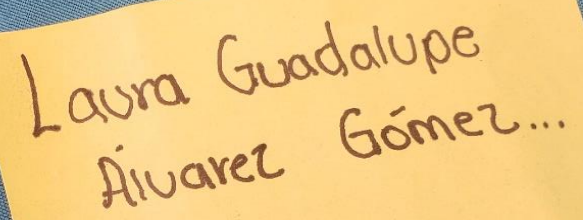 Laura Guadalupe
Álvarez Gómez...